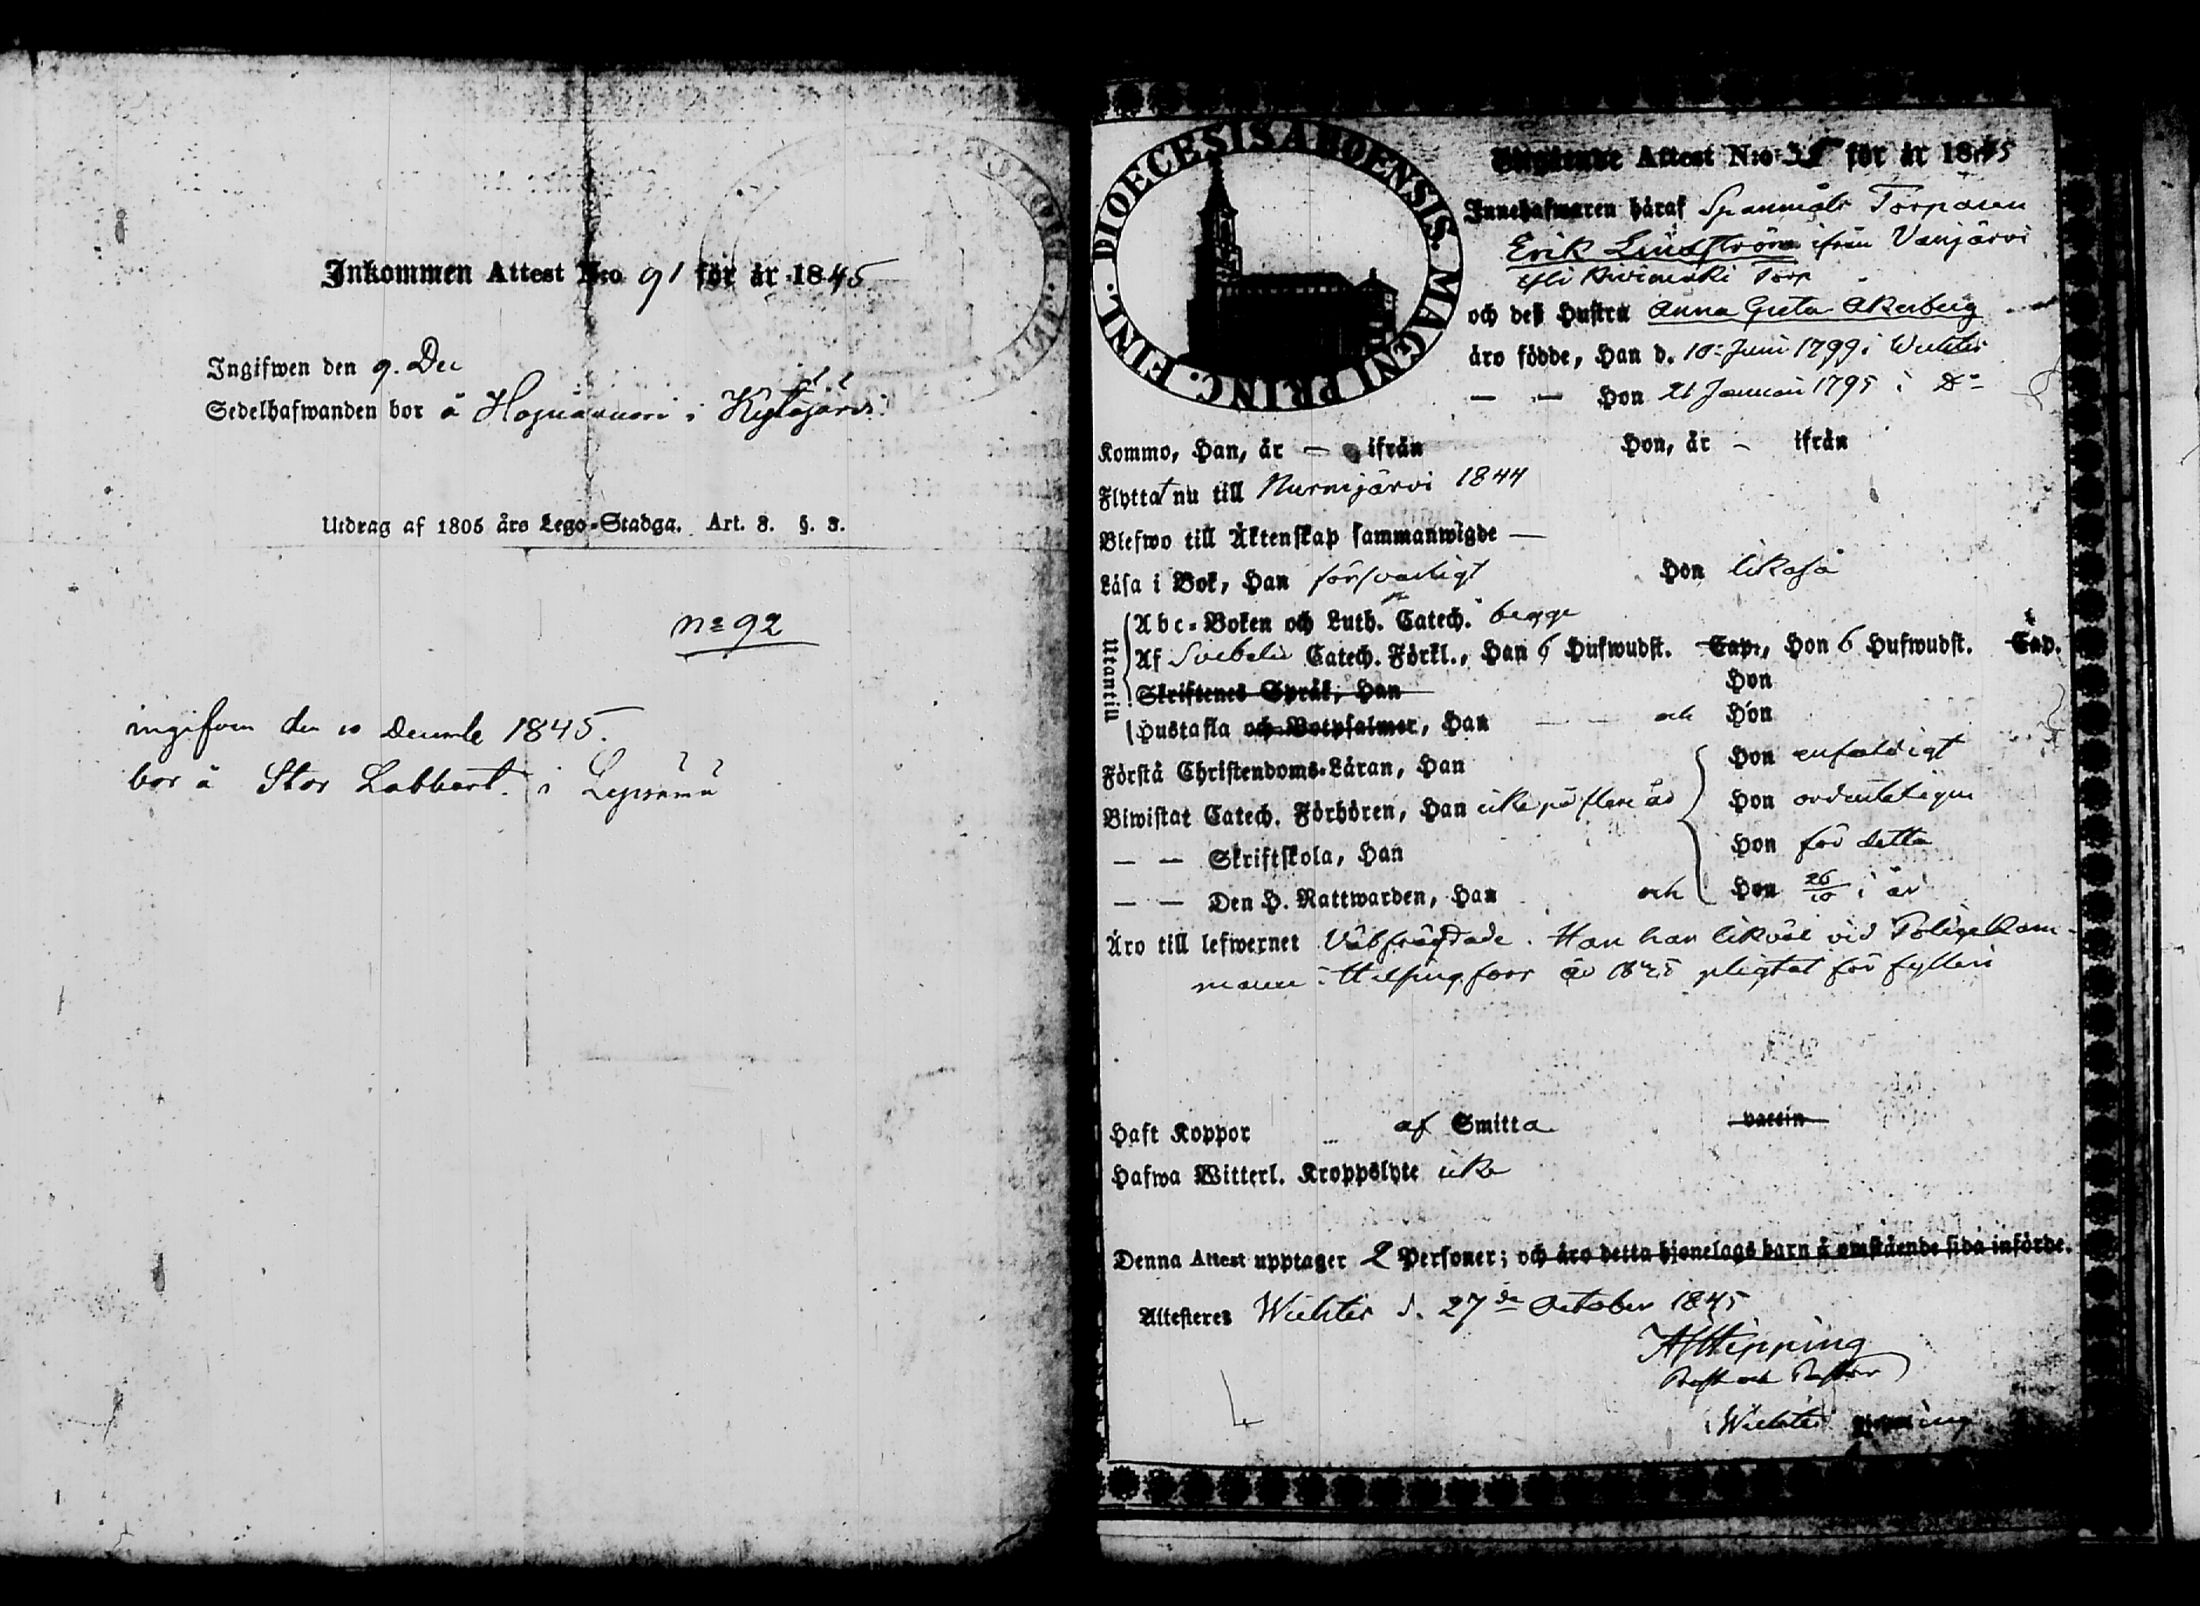 Inkommen Attest N:o 91 för år 1845
Ingifwen den 9. Dec
Sedelhafwanden bor å i Kytäjärvi
Utdrag af 1805 års Lego-Stadga. Art. 3. §. 3.
No 92
ingifven den 10 Decemb 1845.
bor å Stor Labbart. i Lepsämä
DIOECESIS ABOENSIS. MAGNI PRINC. FINL.
Utgående Attest N:o för år 1845
Innehafwaren häraf Spanmåls Torparen
Erik Lindström ifrån Vanjärvi
Torp
och deß Hustru Anna Greta Åkerberg
äro födde, Han d. 10 Juni 1799 i Wichtis
— — Hon 21 Januari 1795 i Do
Kommo, Han, år — ifrån Hon, år — ifrån
Flyttat nu till Nurmijärvi 1844
Blefwo till Äktenskap sammanwigde —
Läsa i Bok, Han försvarligt Hon likaså
Utantill
Abc-Boken och Luth. Catech. begge
Af Svebelii Catech. Förkl., Han 6 Hufwudst. Cap., Hon 6 Hufwudst. Cap.
Skriftenes Språk, Han Hon
Hustafla och Botpsalmer, Han — — och Hon
Förstå Christendoms-Läran, Han Hon enfaldigt
Biwistat Catech. Förhören, Han icke på flere år Hon ordentligen
— — Skriftskola, Han Hon för detta
— — Den H. Nattwarden, Han och Hon 26/10 i år
Äro till lefwernet Välfrägdade. Han har likväl vid Poliçe Kam-
maren i Helsingfors år pligtat för fylleri
Haft Koppor af Smitta vaccin
Hafwa Witterl. Kroppslyte icke
Denna Attest upptager 2 Personer; och äro detta hjonelags barn å omstående sida införde.
Attesteres Wichtis d. 27de October 1845
AJHipping
Prost och Pastor
i Wichtis